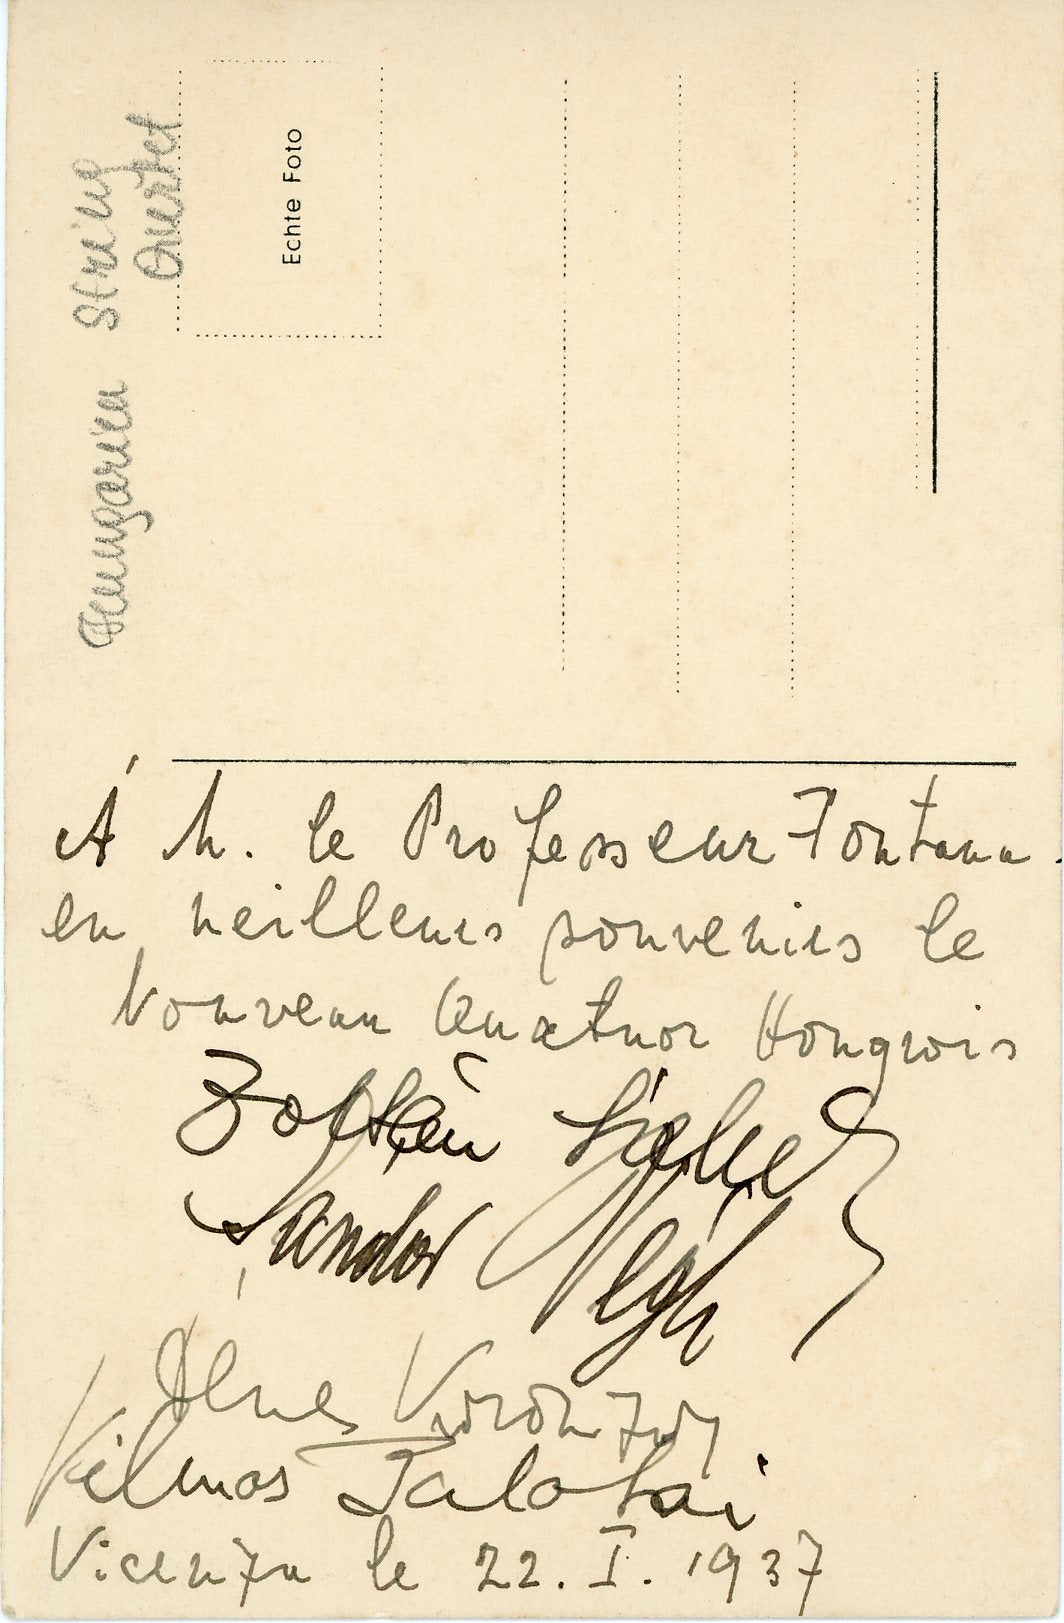 Hungarian String
Quartet
Echte Foto
Á M. le Professeur Fontana.
en meilleurs souvenirs le
Nouveau Quatuor Hongrois
Zoltán Székely
Sándor Végh
Dénes Koromzay
Vilmos Palotai
Vicenza le 22. I. 1937